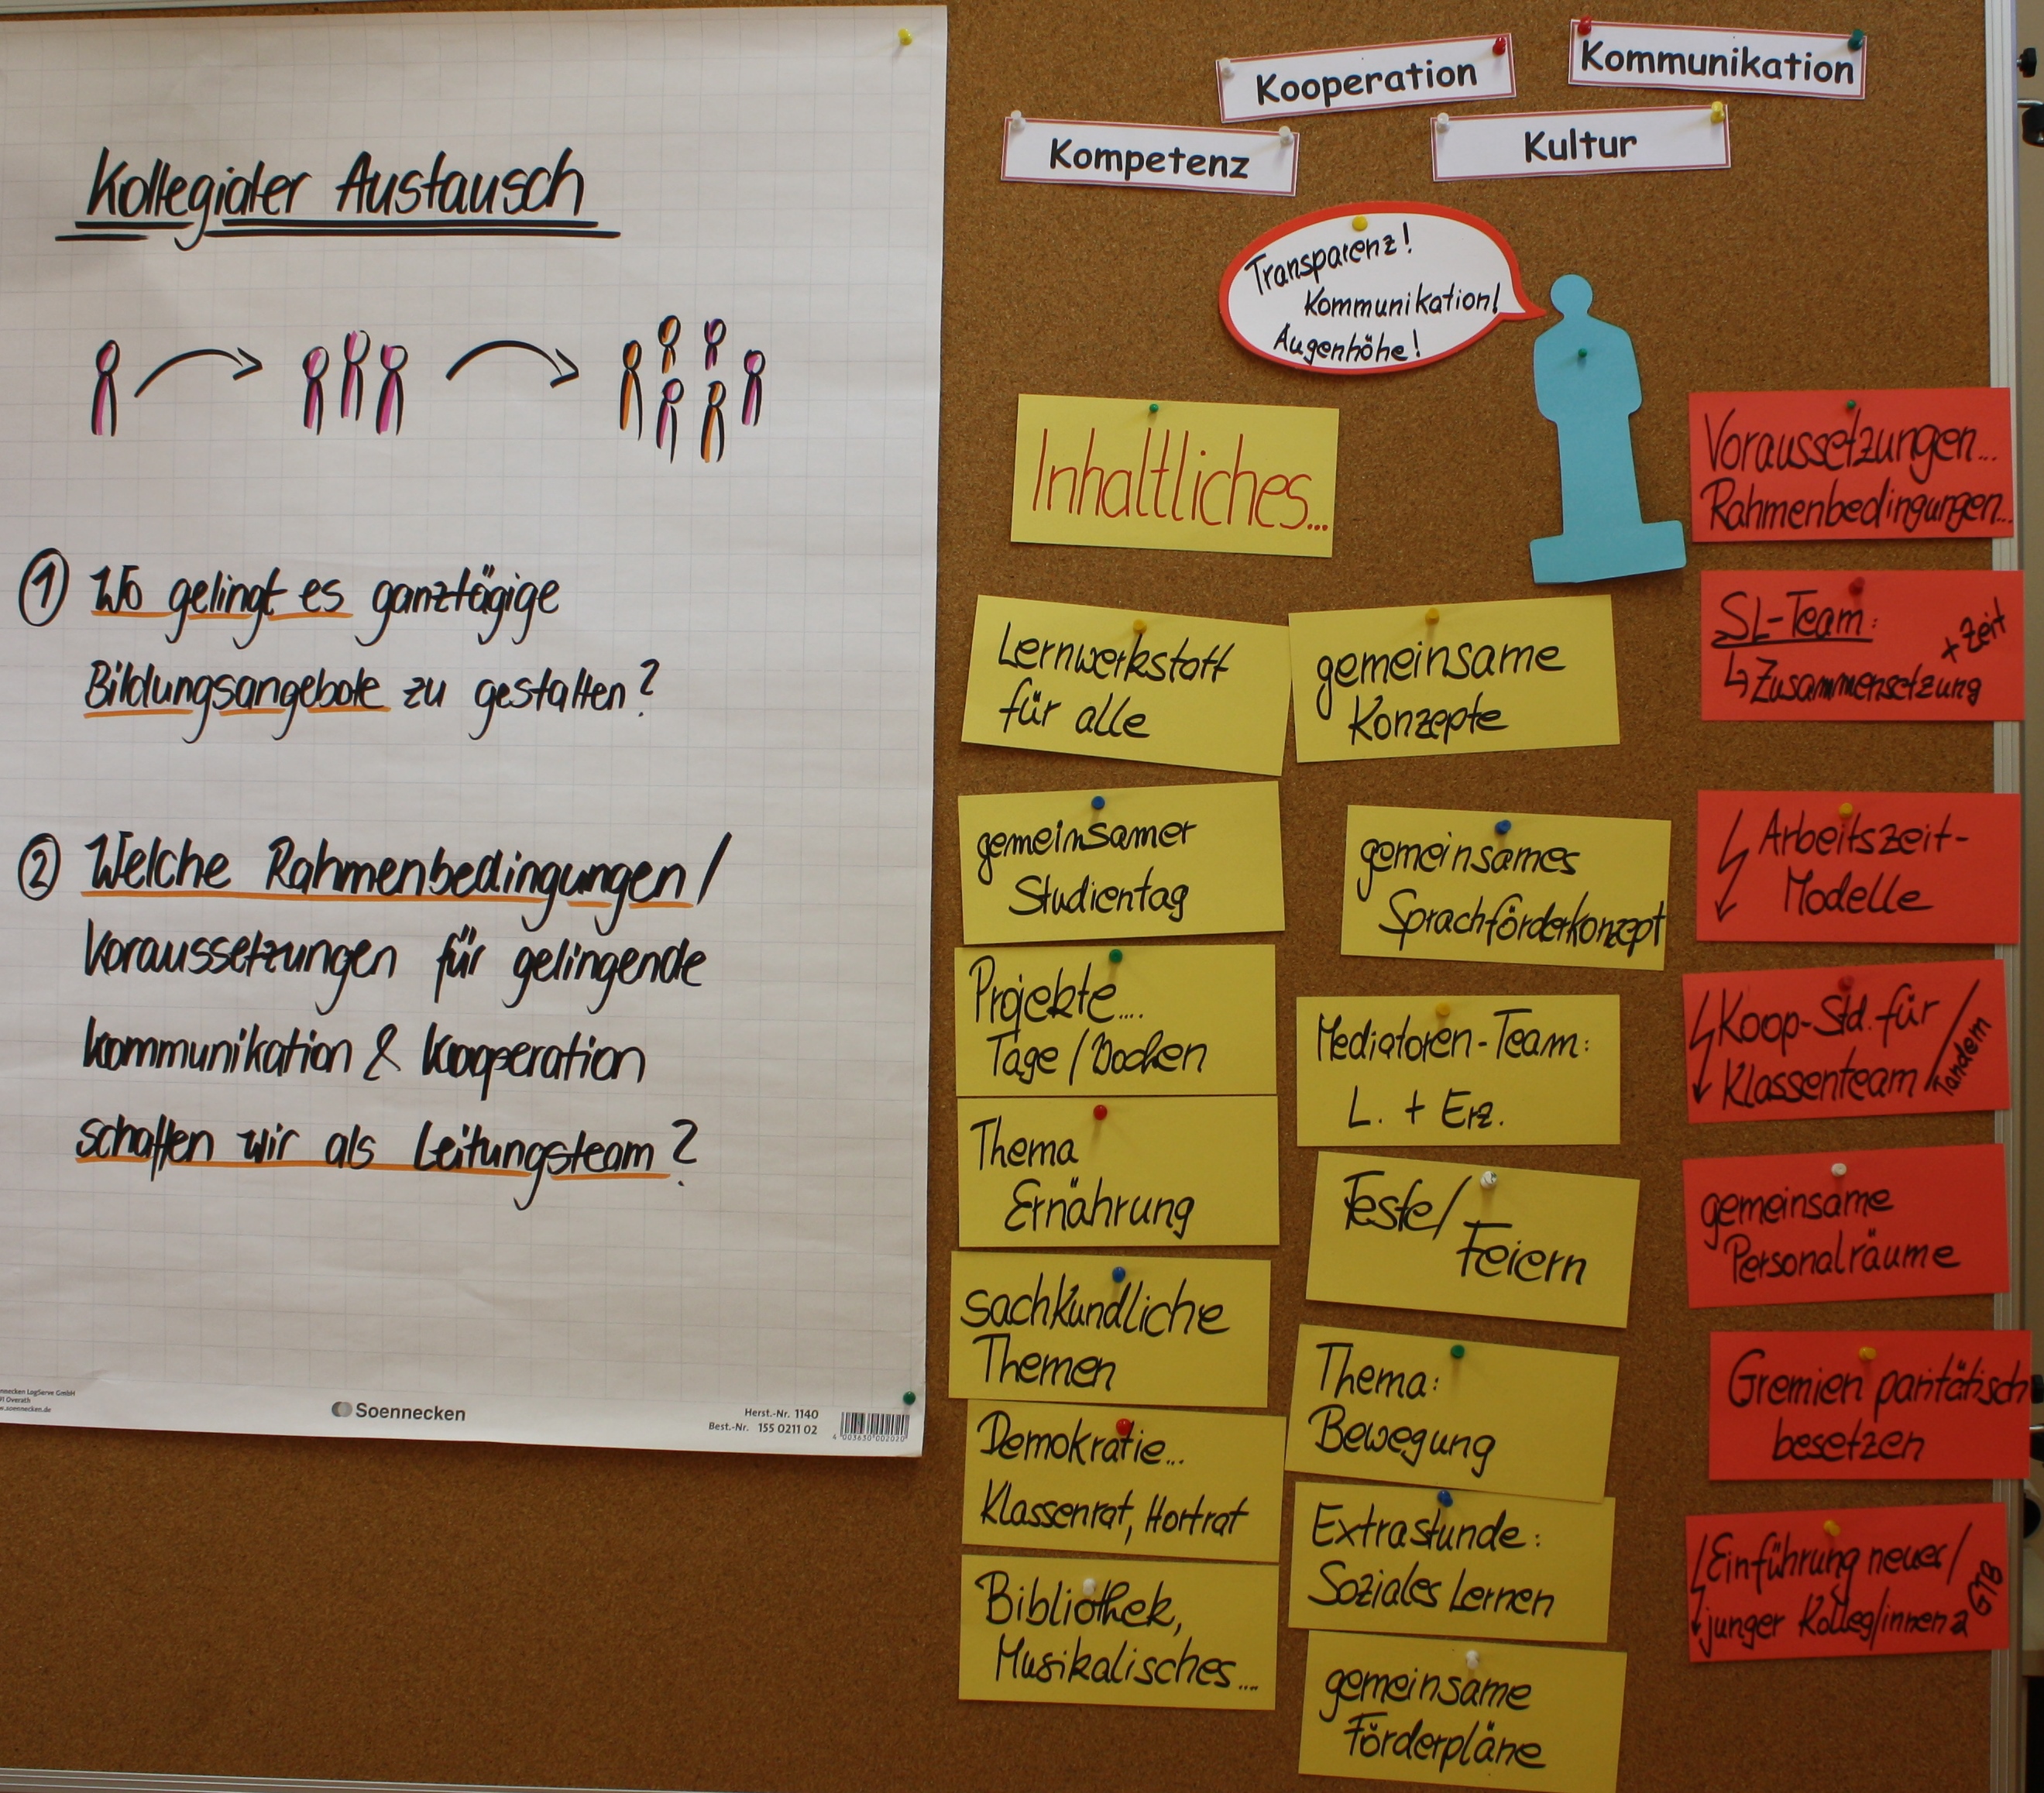 Kollegialer Austausch
① Wo gelingt es ganztägige
Bildungsangebote zu gestalten?
② Welche Rahmenbedingungen/
Voraussetzungen für gelingende
Kommunikation & Kooperation
schaffen wir als Leitungsteam?
Soennecken
Herst.-Nr. 1140
Best.-Nr. 155 0211 02
4 003630 002020
Kooperation
Kommunikation
Kompetenz
Kultur
Transparenz!
Kommunikation!
Augenhöhe!
Inhaltliches...
Lernwerkstatt
für alle
gemeinsamer
Studientag
Projekte....
Tage/Wochen
Thema
Ernährung
sachkundliche
Themen
Demokratie...
Klassenrat, Hortrat
Bibliothek,
Musikalisches....
gemeinsame
Konzepte
gemeinsames
Sprachförderkonzept
Mediatoren-Team:
L. + Erz.
Feste/
Feiern
Thema:
Bewegung
Extrastunde:
Soziales Lernen
gemeinsame
Förderpläne
Voraussetzungen...
Rahmenbedingungen...
SL-Team:
↳ Zusammensetzung
+ Zeit
Arbeitszeit-
Modelle
Koop-Std. für
Klassenteam/
Tandem
gemeinsame
Personalräume
Gremien paritätisch
besetzen
Einführung neuer/
junger Kolleg/innen
GTB